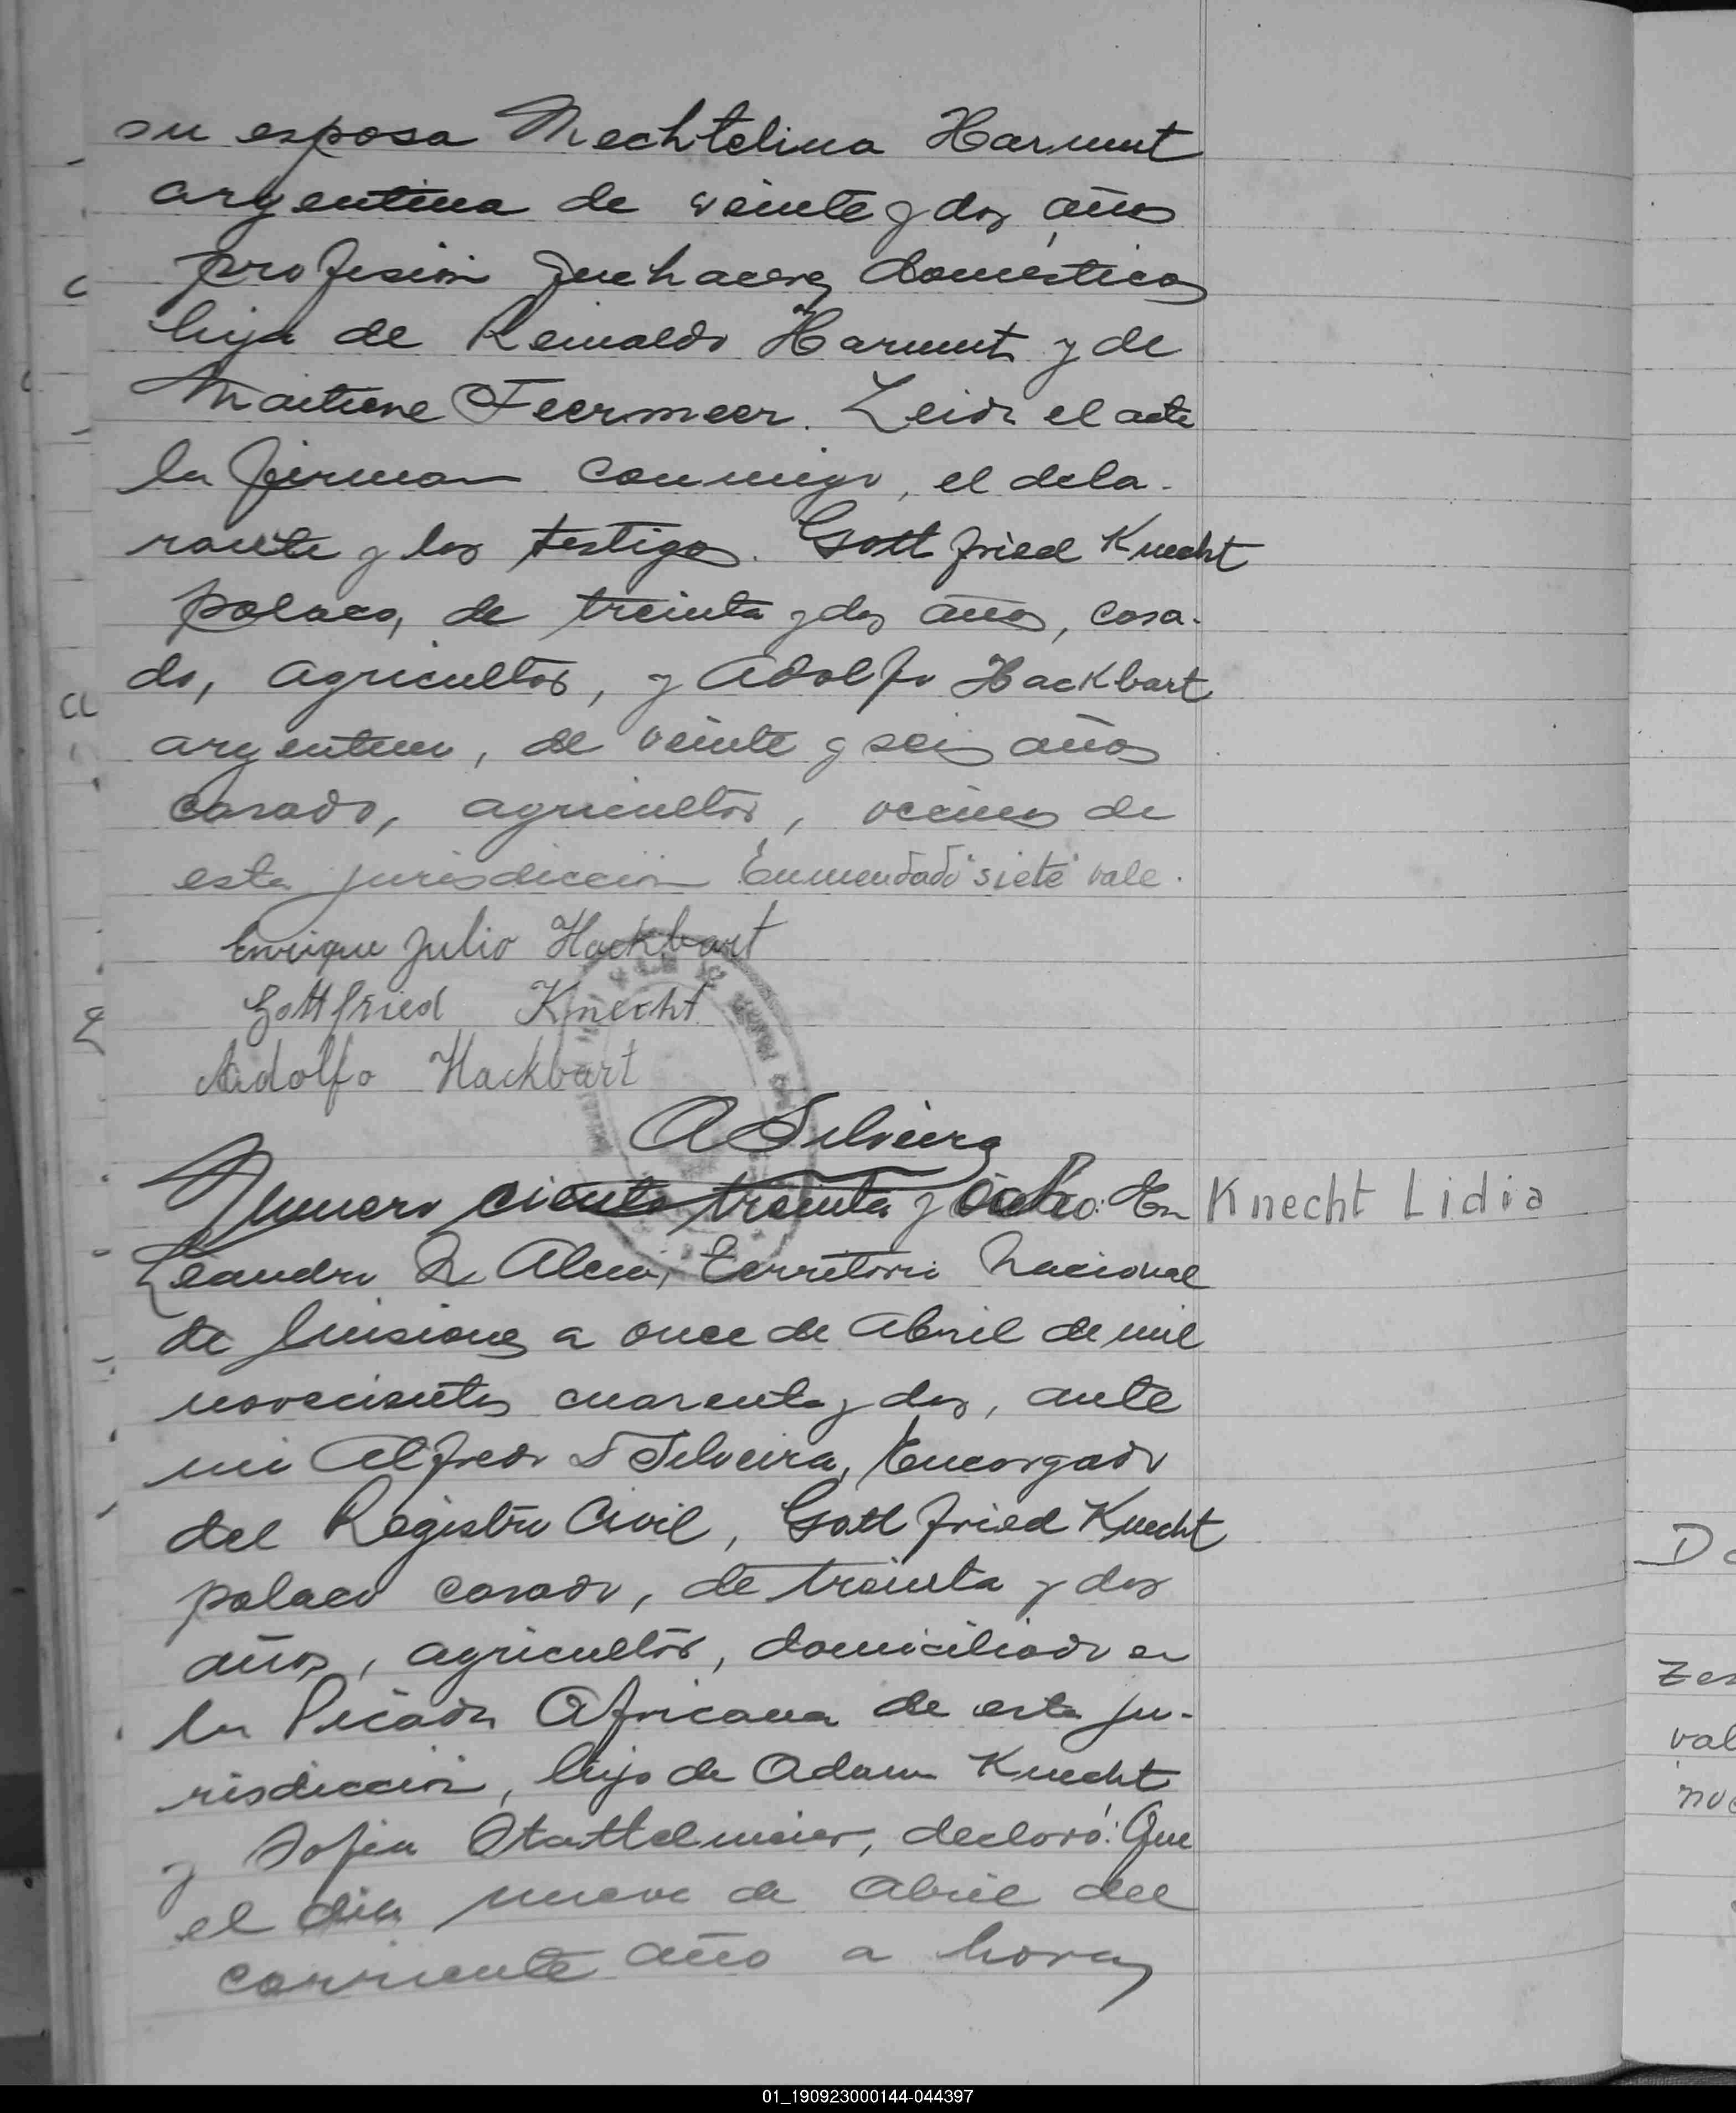 su esposa Mechtelina Harmut
argentina de veinte y dos años
profesión quehaceres domésticos
hija de Reinaldo Harmut y de
Feermeer. Leida el acta
la firman conmigo, el decla-
rante y los testigos. Gottfried Knecht
polaco, de treinta y dos años, casa-
do, agricultor, y Adolfo Hackbart
argentino, de veinte y seis años
casado, agricultor, vecinos de
esta jurisdicción Enmendado "siete" vale.
Enrique Julio Hackbart
Gottfried Knecht
Adolfo Hackbart
A Silveira
Numero ciento treinta y ocho: En
Knecht Lidia
Leandro N. Alem, Territorio Nacional
de Misiones a once de Abril de mil
novecientos cuarenta y dos, ante
mi Alfredo S Silveira, Encargado
del Registro Civil, Gottfried Knecht
polaco casado, de treinta y dos
años, agricultor, domiciliado en
la Picada Africana de esta ju-
risdicción, hijo de Adam Knecht
y Sofia Stattelmeier, declaró: Que
el dia nueve de Abril del
corriente año a horas
01_190923000144-044397